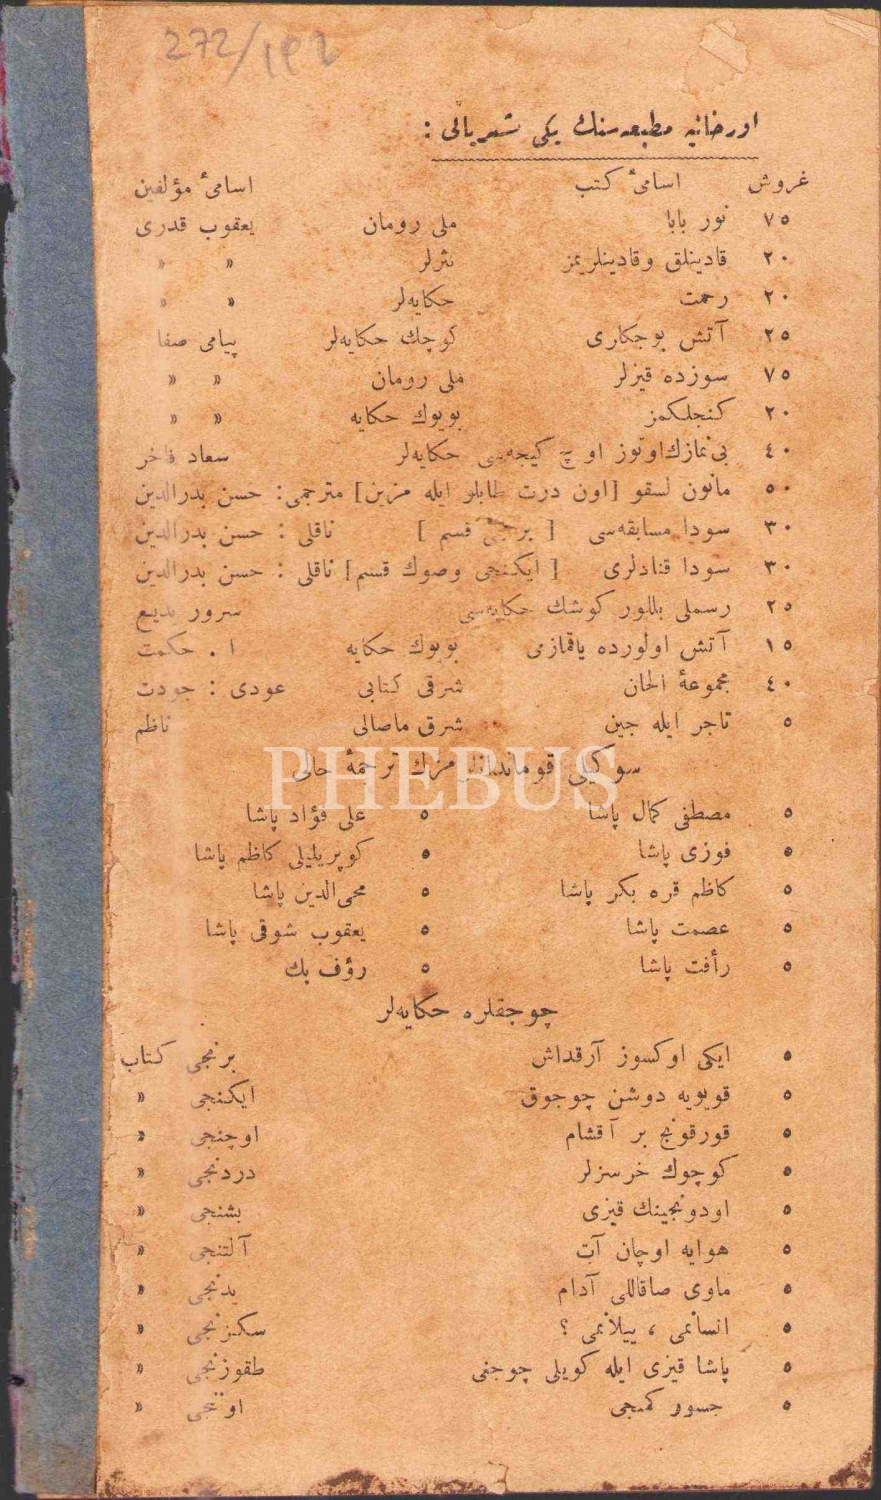 272/192
اورخانیه مطبعه‌سنك یکی نشریاتی :
غروش اسامیٔ کتب اسامیٔ مؤلفین
۷۵ نور بابا ملی رومان یعقوب قدری
۲۰ قادینلق وقادینلریمز نثرلر » »
۲۰ رحمت حکایه‌لر » »
۲۵ آتش بوجکاری کوچك حکایه‌لر پیامی صفا
۷۵ سوزده قیزلر ملی رومان » »
۲۰ کنجلکمز بویوك حکایه » »
٤۰ بی‌نمازك اوتوز اوچ کیجه‌سی حکایه‌لر سعاد فاخر
۵۰ مانون لسقو [اون درت طابلو ایله مزین] مترجمی: حسن بدرالدین
۳۰ سودا مسابقه‌سی [ برنجی قسم ] ناقلی : حسن بدرالدین
۳۰ سودا قنادلری [ ایکنجی وصوك قسم] ناقلی : حسن بدرالدین
۲۵ رسملی بللور کوشك حکایه‌سی سرور بدیع
۱۵ آتش اولورده یاقمازمی بویوك حکایه ا . حکمت
٤۰ مجموعهٔ الحان شرقی کتابی عودی : جودت
۵ تاجر ایله جین شرق ماصالی ناظم
سوکیلی قوماندانلرمزك ترجمهٔ حالی
PHEBUS
۵ مصطفی کمال پاشا ۵ علی فؤاد پاشا
۵ فوزی پاشا ۵ کوپریلیلی کاظم پاشا
۵ کاظم قره بکر پاشا ۵ محی‌الدین پاشا
۵ عصمت پاشا ۵ یعقوب شوقی پاشا
۵ رأفت پاشا ۵ رؤف بك
چوجقلره حکایه‌لر
۵ ایکی اوکسوز آرقداش برنجی کتاب
۵ قویویه دوشن چوجوق ایکنجی »
۵ قورقونج بر آقشام اوچنجی »
۵ کوچوك خرسزلر دردنجی »
۵ اودونجینك قیزی بشنجی »
۵ هوایه اوچان آت آلتنجی »
۵ ماوی صاقاللی آدام یدنجی »
۵ انسانمی ، ییلانمی ؟ سکزنجی »
۵ پاشا قیزی ایله کویلی چوجغی طقوزنجی »
۵ جسور کمنجی اوننجی »